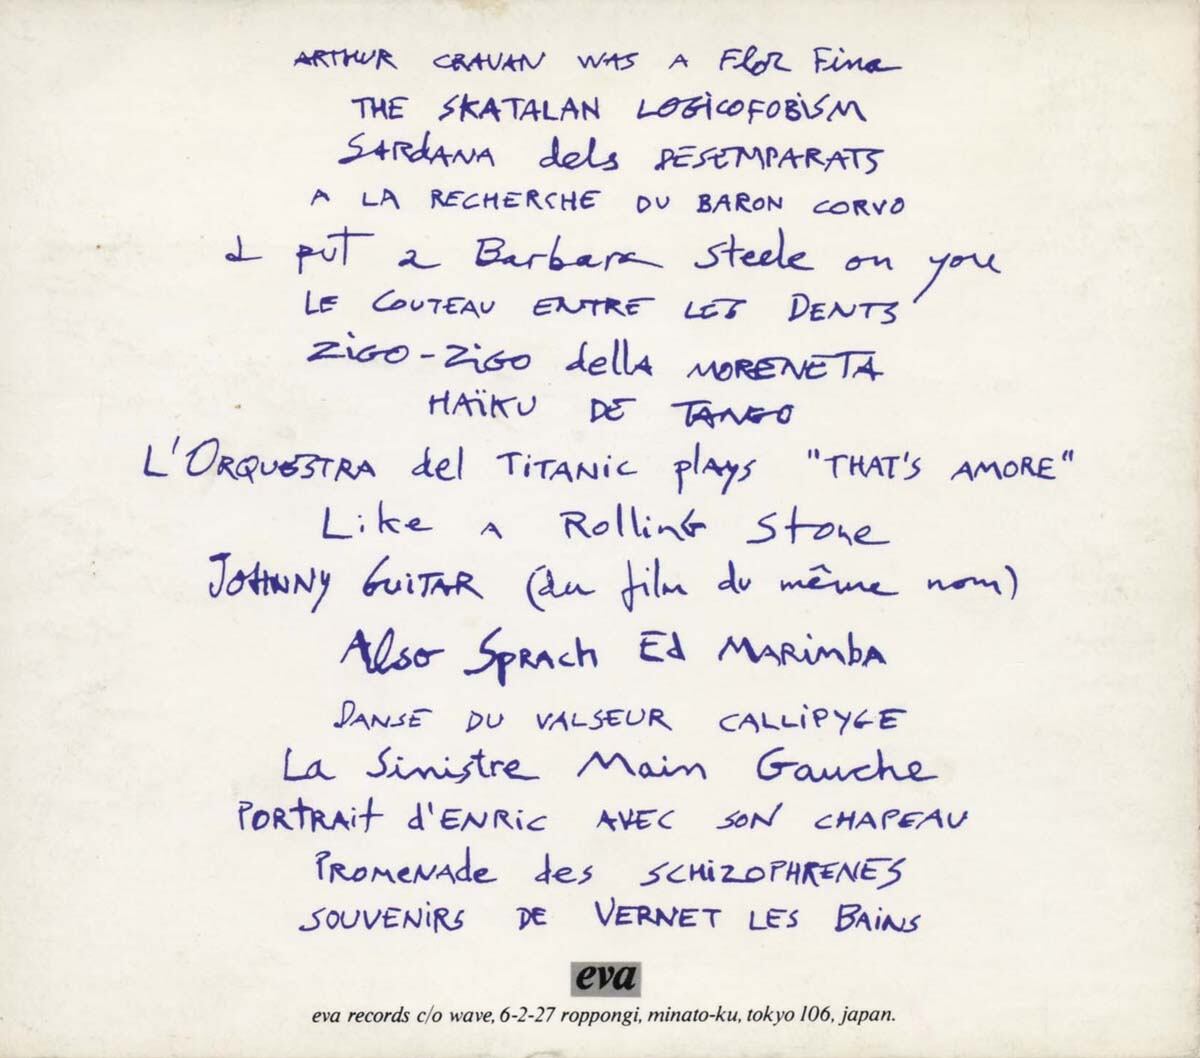 ARTHUR CRAVAN WAS A Flor Fina
THE SKATALAN LOGiCOFOBiSM
SARDANA dels DESEMPARATS
A LA RECHERCHE DU BARON CORVO
I put a Barbara Steele on you
LE COUTEAU ENTRE LES DENTS
ZiGO-ZiGO della MORENETA
HAÏKU DE TANGO
L'ORQUESTRA del TiTANiC plays "THAT'S AMORE"
Like A Rolling Stone
JOHNNY GUiTAR (du film du même nom)
Also Sprach Ed MARimbA
DANSE DU VALSEUR CALLiPYGE
La Sinistre Main Gauche
PORTRAit d'ENRiC AVEC SON CHAPEAU
PROMENAde des SCHiZOPHRENES
SOUVENiRS DE VERNET LES BAiNS
eva
eva records c/o wave, 6-2-27 roppongi, minato-ku, tokyo 106, japan.